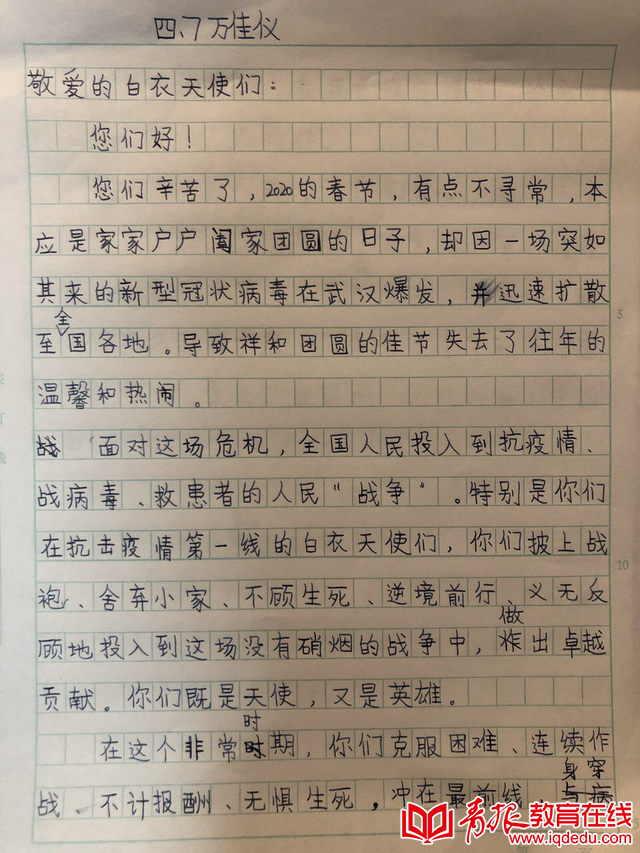 四、7 万佳仪
敬爱的白衣天使们:
您们好!
您们辛苦了,2020的春节,有点不寻常,本
应是家家户户阖家团圆的日子,却因一场突如
其来的新型冠状病毒在武汉爆发,并迅速扩散
至全国各地。导致祥和团圆的佳节失去了往年的
温馨和热闹。
面对这场危机,全国人民投入到抗疫情、
战病毒、救患者的人民“战争”。特别是你们
在抗击疫情第一线的白衣天使们,你们披上战
袍、舍弃小家、不顾生死、逆境前行、义无反
顾地投入到这场没有硝烟的战争中,做出卓越
贡献。你们既是天使,又是英雄。
在这个非常时期,你们克服困难、连续作
战、不计报酬、无惧生死,冲在最前线,身穿
青报教育在线
www.iqdedu.com